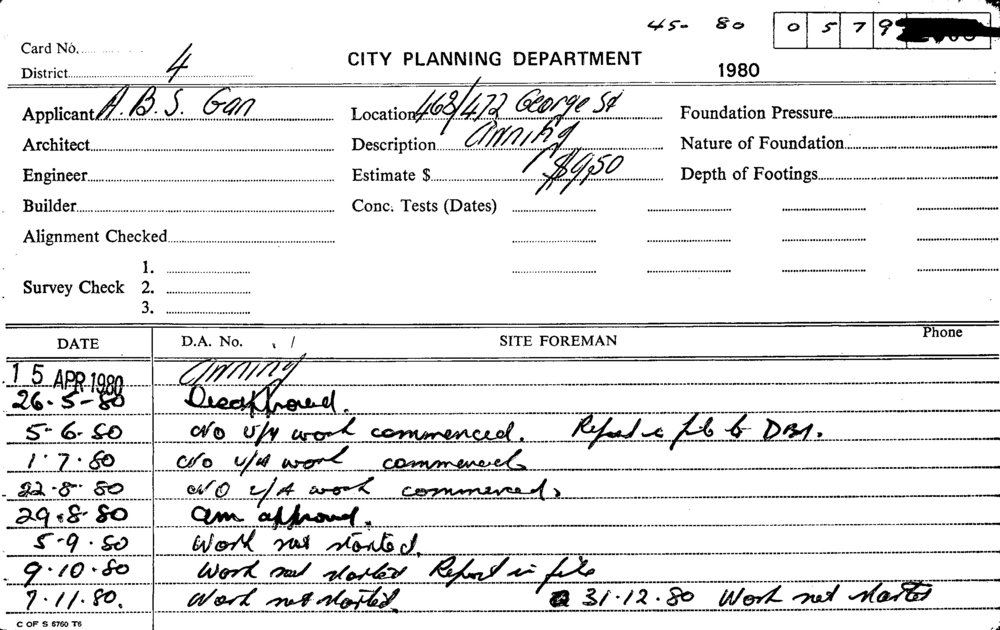 45- 80 0 5 7 9
Card No.
District 4
CITY PLANNING DEPARTMENT
1980
Applicant A. B. S. Gan Location 468/472 George St Foundation Pressure
Architect Description Awning Nature of Foundation
Engineer Estimate $ Depth of Footings
Builder Conc. Tests (Dates)
Alignment Checked
1.
Survey Check 2.
3.
DATE D.A. No. SITE FOREMAN Phone
15 APR 1980 Awning
26.5-80 Disapproved.
5-6.80 No U/A work commenced. Report in file to
1.7.80 No U/A work commenced
22.8.80 NO U/A work commenced.
29.8.80 am approved.
5-9.80 Work not started.
9.10.80 Work not started Report in file
7.11.80. Work not started. 31.12.80 Work not started
C OF S 6760 T6